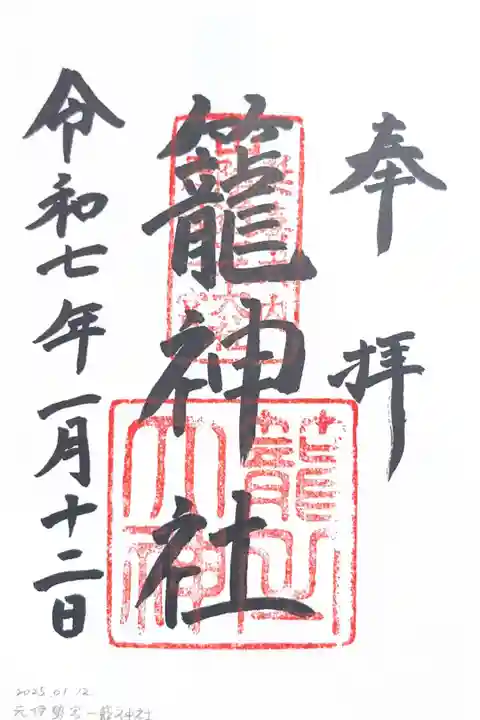 奉拝
籠神社
令和七年一月十二日
籠之大神
2025.01.12
元伊勢宮一籠神社